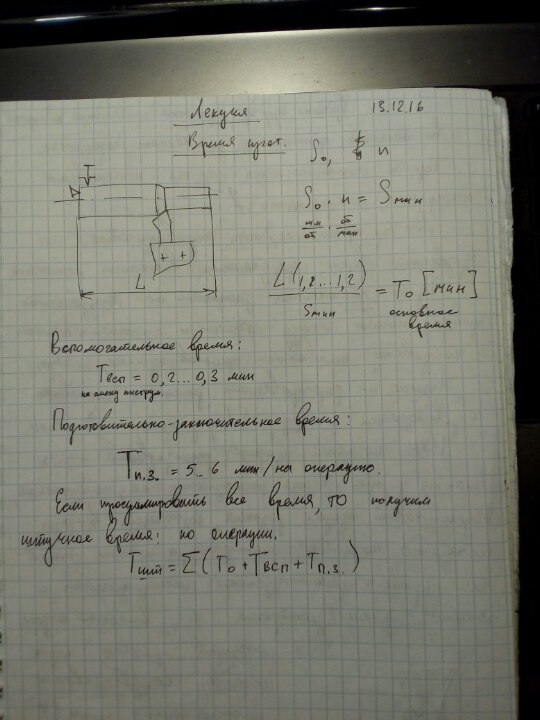 Лекция 13.12.16
Время изгот.
S₀, n
S₀ · n = Sмин
мм/об · об/мин
L
L(1,2...1,2)/Sмин = T₀ [мин]
основное время
Вспомогательное время:
Tвсп = 0,2...0,3 мин
на смену инструм.
Подготовительно-заключительное время:
Tп.з. = 5..6 мин/на операцию.
Если просуммировать все время, то получим
штучное время: по операции.
Tшт = Σ(T₀ + Tвсп + Tп.з.)